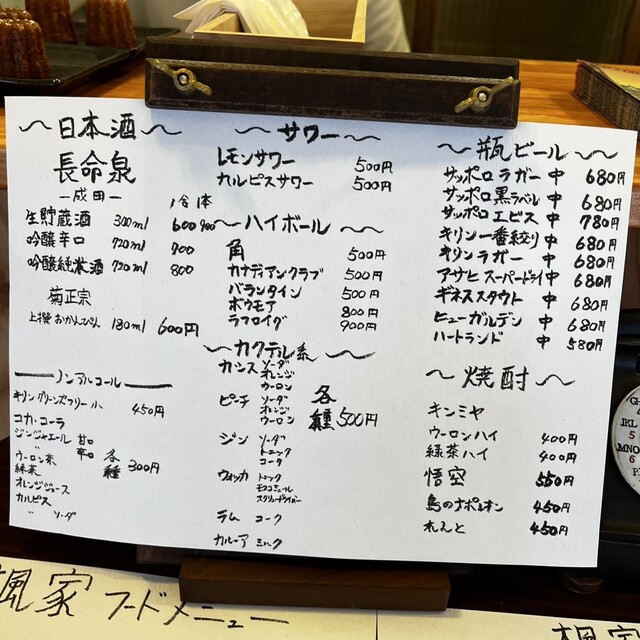 ～日本酒～
長命泉
ー成田ー
1合 1本
生貯蔵酒 300ml 600 900
吟醸辛口 720ml 700
吟醸純米酒 720ml 800
菊正宗
上撰 おかんびん 180ml 600円
ノンアルコール
キリン グリーンズフリー 小 450円
コカ・コーラ
ジンジャエール 甘口
〃 辛口
ウーロン茶
緑茶
オレンジジュース
カルピス
〃 ソーダ
各種 300円
～サワー～
レモンサワー 500円
カルピスサワー 500円
～ハイボール～
角 500円
カナディアンクラブ 500円
バランタイン 500円
ボウモア 800円
ラフロイグ 900円
～カクテル系～
カシス ソーダ
オレンジ
ウーロン
ピーチ ソーダ
オレンジ
ウーロン
ジン ソーダ
トニック
コーク
ウォッカ トニック
モスコミュール
スクリュードライバー
ラム コーク
カルーア ミルク
各種 500円
～瓶ビール～
サッポロ ラガー 中 680円
サッポロ 黒ラベル 中 680円
サッポロ エビス 中 780円
キリン 一番絞り 中 680円
キリン ラガー 中 680円
アサヒ スーパードライ 中 680円
ギネススタウト 中 680円
ヒューガルデン 中 680円
ハートランド 中 580円
～焼酎～
キンミヤ
ウーロンハイ 400円
緑茶ハイ 400円
悟空 550円
島のナポレオン 450円
れんと 450円
楓家 フードメニュー
楓家
GH
JKL
5
MNO
6